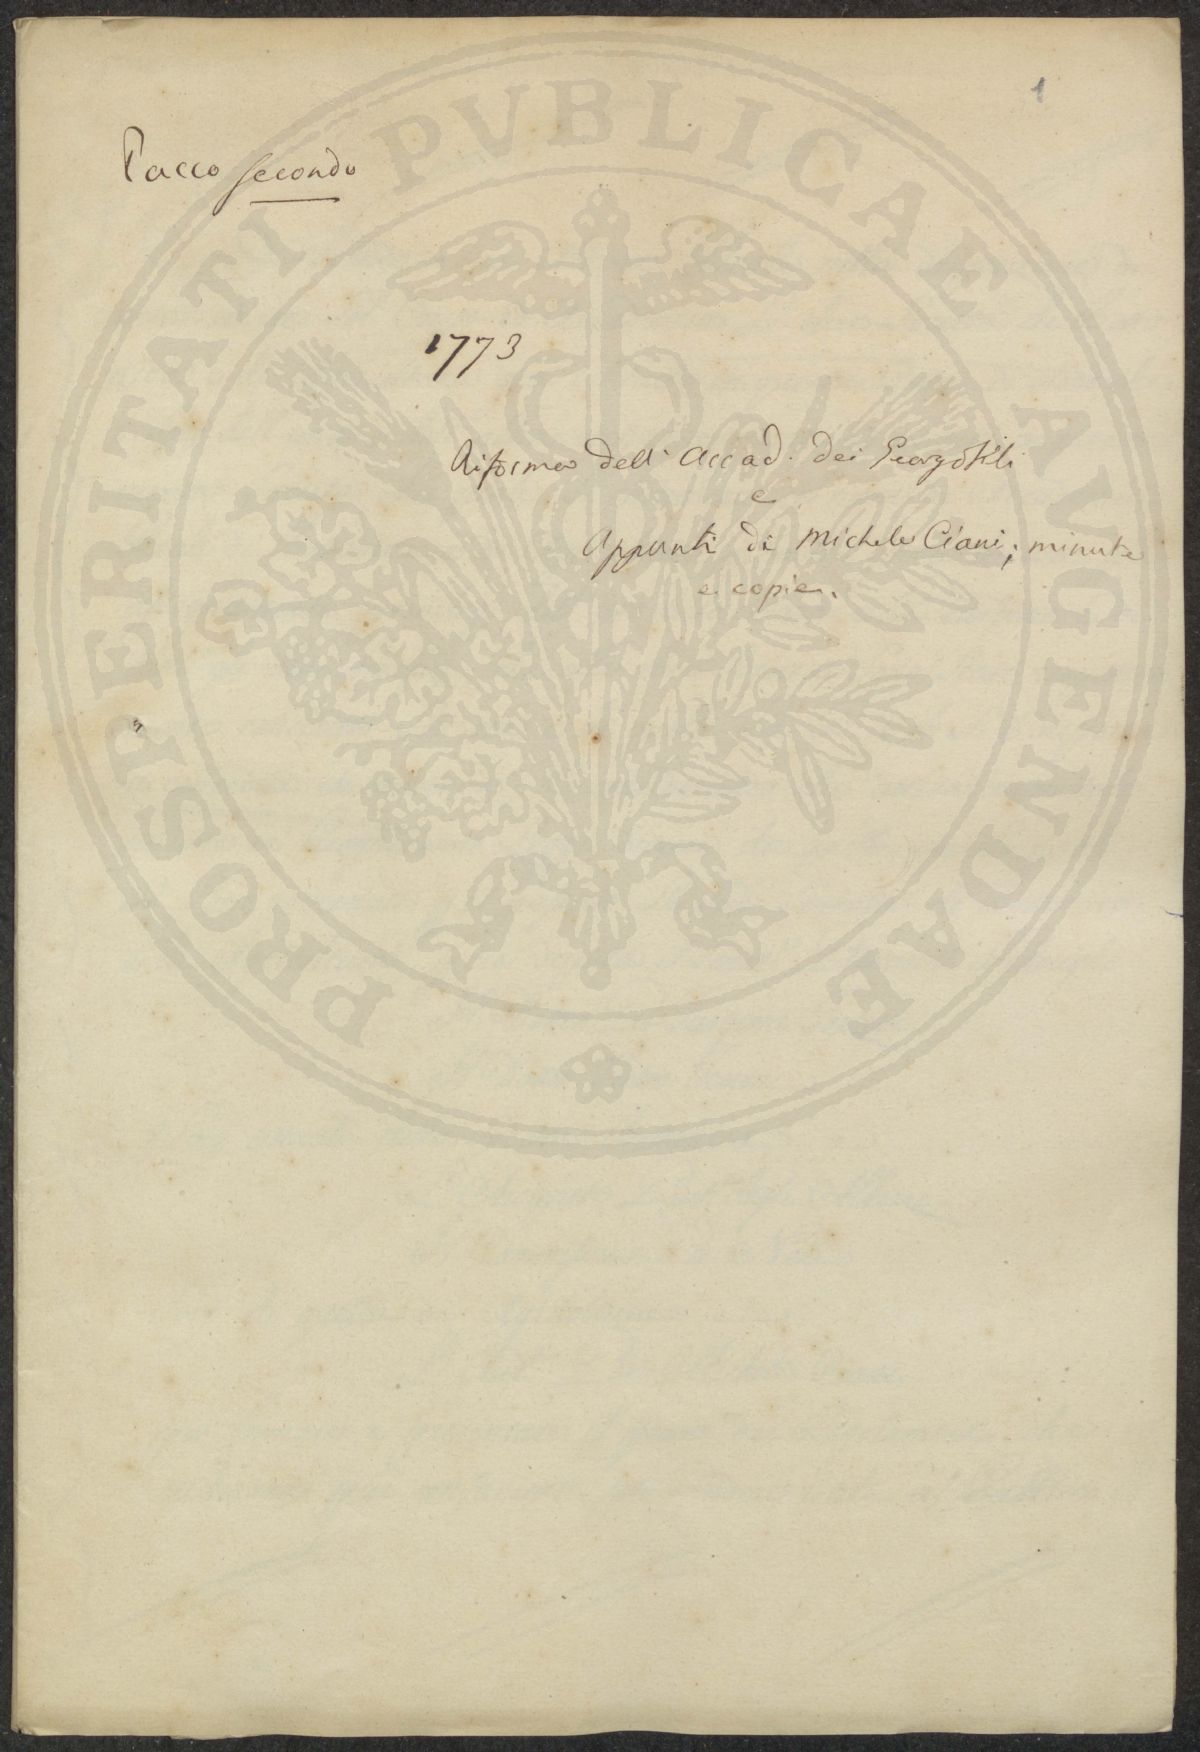 1
Pacco secondo
1773
Riforma dell' Accad. dei Georgofili
e
Appunti di Michele Ciani; minute
e copie.
PROSPERITATI PVBLICAE AVGENDAE